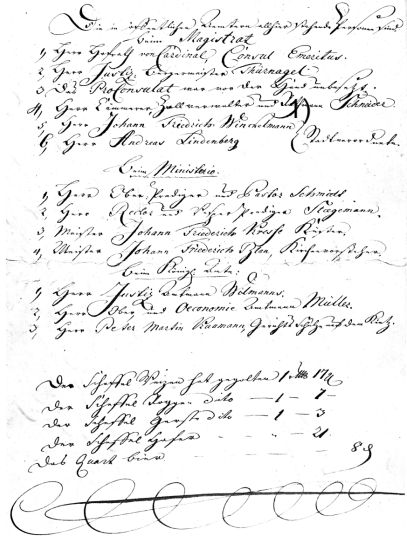 Die in öffentlichen Aemtern allhier stehende Personen sind
beim Magistrat
1, Herr Hofrath von Cardinal, Consul Emeritus.
2, Herr Justiz Bürgermeister Thürnagel
3, Das ProConsulat war vor der Hand unbesetzt.
4, Herr Cämmerer, Zollverwalter und Schnäder
5, Herr Johann Friedrich Winckelmann
6, Herr Andreas Lindenberg Stadtverordnete.
Beim Ministerio.
1, Herr Ober Prediger und Pastor Schmidt.
2, Herr Rector und Prediger Stegemann.
3, Meister Johann Friederich Küster.
4, Meister Johann Friederich Kirchenvorsteher.
beim Königl. Amte:
1, Herr Justiz Amtmann Wilmanns.
2, Herr Ober und Oeconomie Amtmann Müller.
3, Herr Peter Martin Naumann, Gerichts Schulze auf dem Kietz.
Der Scheffel Weitzen hat gegolten 1
Der Scheffel Roggen dito — 1 — 7 —
der Scheffel Gerste dito — 1 — 3
der Scheffel Hafer - - - 21.
das Quart bier - - - 8 d